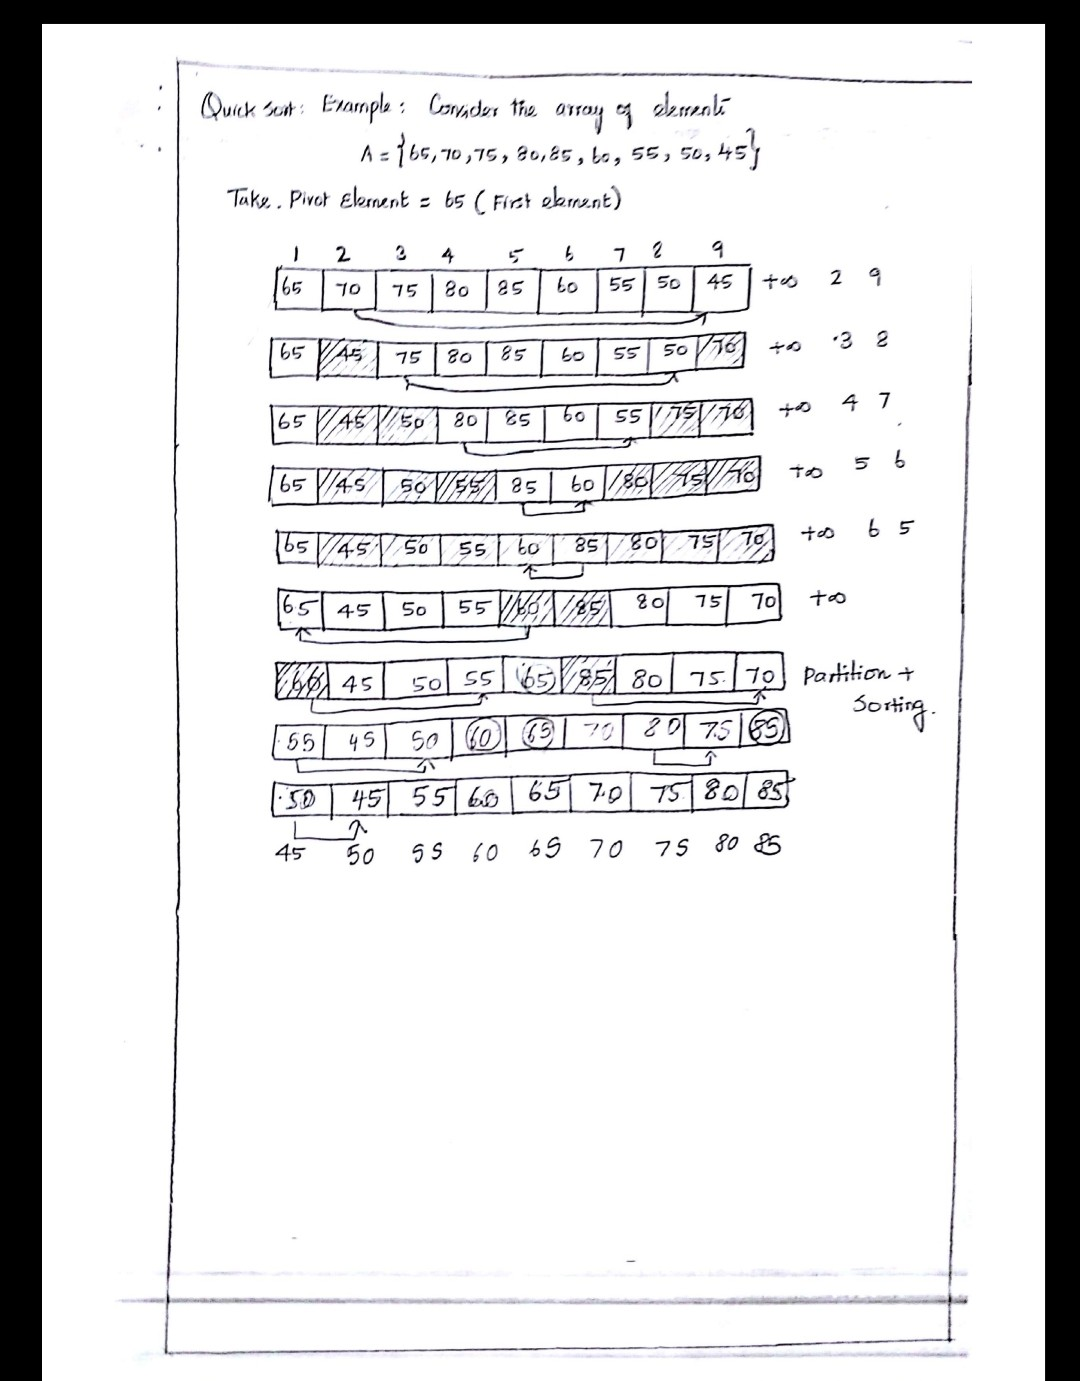 Quick Sort: Example: Consider the array of elements
A = {65, 70, 75, 80, 85, 60, 55, 50, 45}
Take. Pivot Element = 65 (First element)
1 2 3 4 5 6 7 8 9
65 70 75 80 85 60 55 50 45 +∞ 2 9
65 45 75 80 85 60 55 50 70 +∞ 3 8
65 45 50 80 85 60 55 75 70 +∞ 4 7
65 45 50 55 85 60 80 75 70 +∞ 5 6
65 45 50 55 60 85 80 75 70 +∞ 6 5
65 45 50 55 60 85 80 75 70 +∞
60 45 50 55 65 85 80 75 70 Partition +
Sorting.
55 45 50 60 65 70 80 75 85
50 45 55 60 65 70 75 80 85
45 50 55 60 65 70 75 80 85